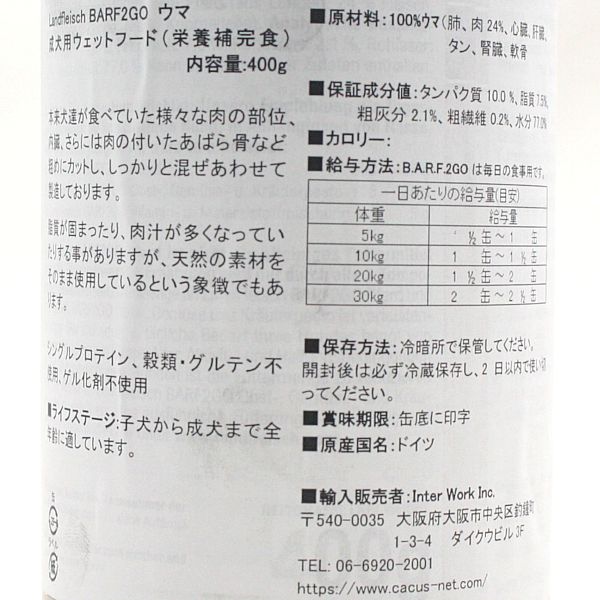 Landfleisch BARF2GO ウマ
成犬用ウェットフード(栄養補完食)
内容量:400g
本来犬達が食べていた様々な肉の部位、
内臓、さらには肉の付いたあばら骨など
粗めにカットし、しっかりと混ぜあわせて
製造しております。
脂質が固まったり、肉汁が多くなってい
たりする事がありますが、天然の素材を
そのまま使用しているという象徴でもあ
ります。
シングルプロテイン、穀類・グルテン不
使用、ゲル化剤不使用
■ライフステージ:子犬から成犬まで全
年齢に適しています。
缶
つくる
紙
■原材料:100%ウマ(肺、肉 24%、心臓、肝臓、
タン、腎臓、軟骨
■保証成分値:タンパク質 10.0 %、脂質 7.5%、
粗灰分 2.1%、粗繊維 0.2%、水分 77.0%
■カロリー:
■給与方法:B.A.R.F.2GO は毎日の食事用です。
一日あたりの給与量(目安)
体重 給与量
5kg ½ 缶~1 缶
10kg 1 缶~1 ½ 缶
20kg 1 ½ 缶~2 缶
30kg 2 缶~2 ½ 缶
■保存方法:冷暗所で保管してください。
開封後は必ず冷蔵保存し、2 日以内で使い切
ってください。
■賞味期限:缶底に印字
■原産国名:ドイツ
■輸入販売者:Inter Work Inc.
〒540-0035 大阪府大阪市中央区釣鐘町
1-3-4 ダイクウビル 3F
TEL: 06-6920-2001
https://www.cacus-net.com/